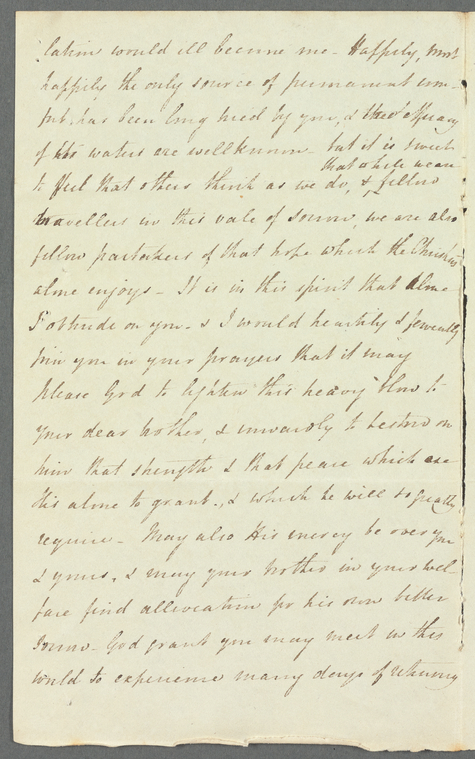 lation would ill become me - Happily, most
happily the only source of permanent com-
fort, has been long tried by you, & the efficacy
of his waters are well known - but it is sweet
to feel that others think as we do, & that while we are fellow
travellers in this vale of sorrow, we are also
fellow partakers of that hope which the Christian
alone enjoys - It is in this spirit that alone
I obtrude on you - & I would heartily & fervently
join you in your prayers that it may
please God to lighten this heavy blow to
your dear brother, & inwardly to bestow on
him that strength & that peace which are
his alone to grant, & which he will so greatly
require - May also His mercy be over you
& yours, & may your brother in your wel-
fare find alleviation for his own bitter
sorrow - God grant you may meet in this
world to experience many days of returning